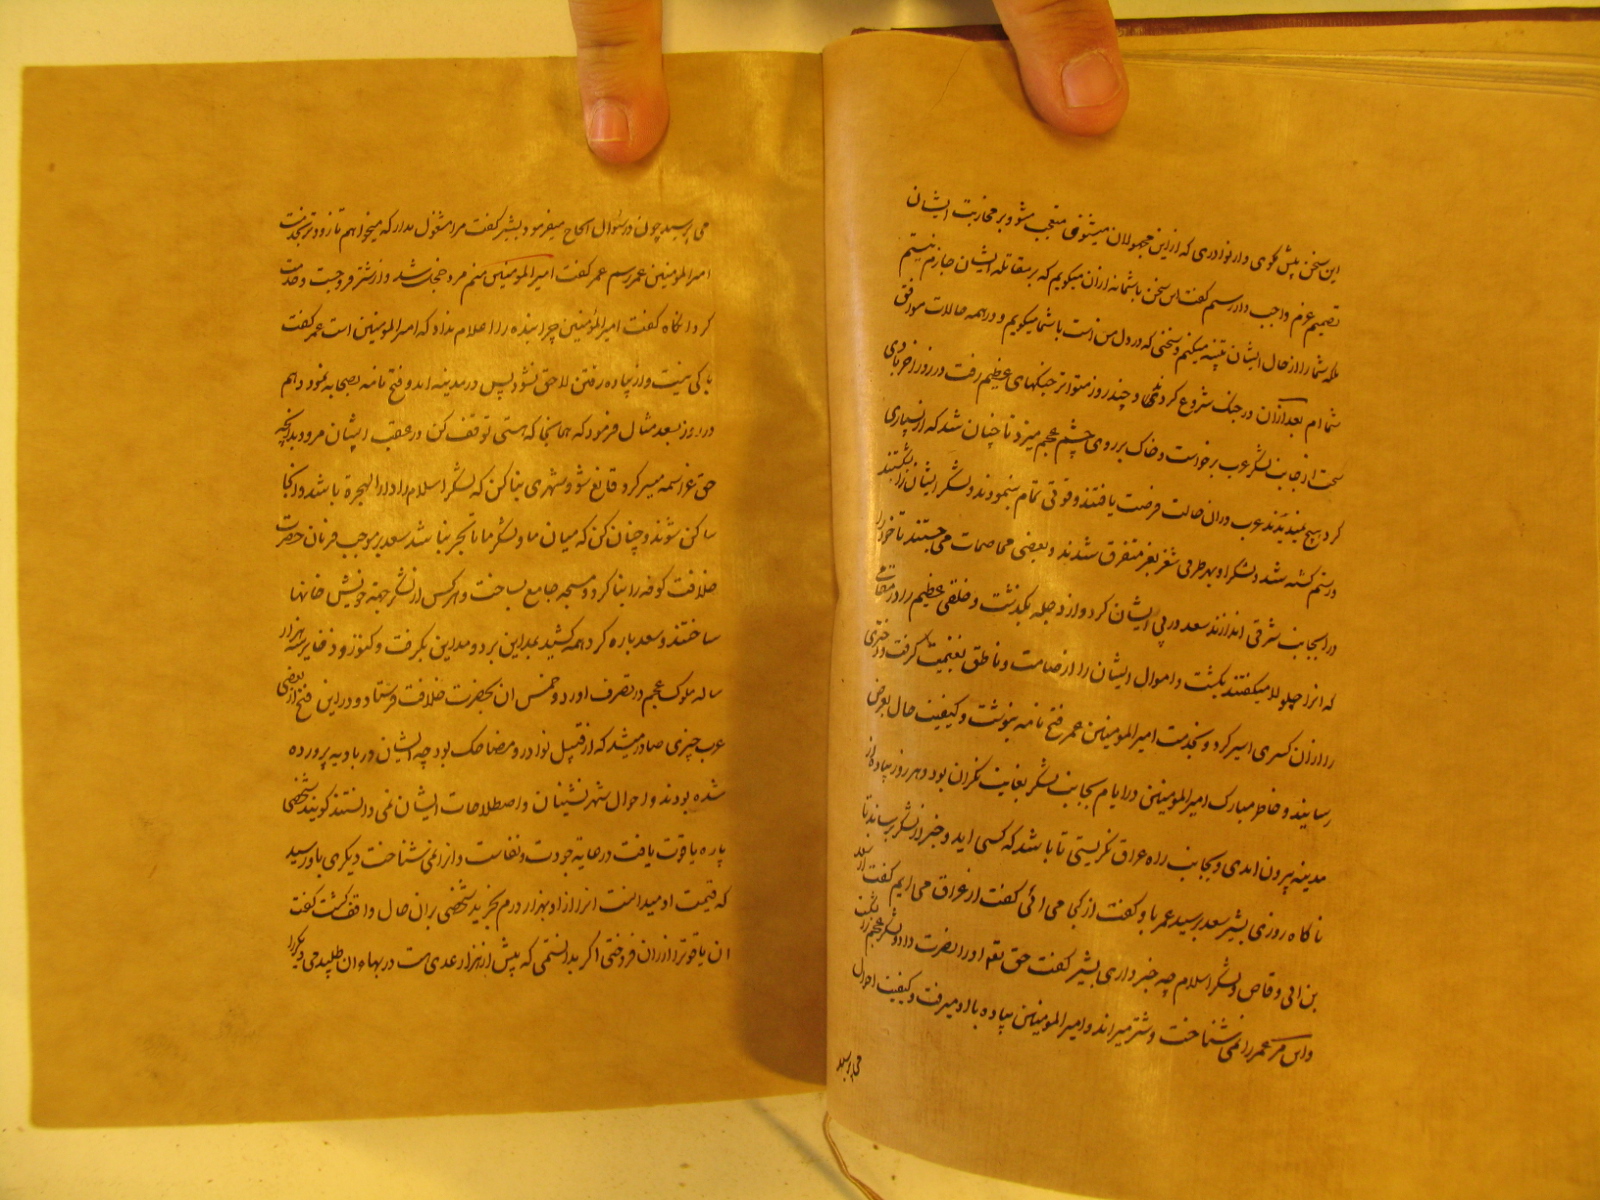 این سخن پیش مگوی و از نوادری که از این مجهولان میشنوی متعجب مشو و بر محاربت ایشان
تصمیم عزم واجب دار رستم گفت این سخن با شما نه از ان میکویم که بر مقاتله ایشان جازم نیستم
بلکه شما را از حال ایشان تنبیه میکنم و سخنی که در دل من است با شما میکویم و در همه حالات موافق
شما ام بعد از آن در جنک شروع کردند و چند روز متواتر جنکهای عظیم رفت و در روز اخر بادی
سخت از جانب لشکر عرب برخواست و خاک بر روی چشم عجم میزد تا چنان شد که از بسیاری
کرد هیچ نمیدیدند عرب در ان حالت فرصت یافتند و قوتی تمام بنمودند و لشکر ایشان را بشکستند
و رستم کشته شد و لشکر او بهر طرفی شغر بغر متفرق شدند و بعضی می جستند تا خود را
در انجانب شرقی اندازند سعد در پی ایشان کرد و از دجله بکذشت و خلقی عظیم را در مقامی
که انرا جلولا میکفتند بکشت و اموال ایشان را از صامت و ناطق بغنیمت گرفت و دختری
را از ان کسری اسیر کرد و بخدمت امیر المومنین عمر فتح نامه بنوشت و کیفیت حال بعرض
رسانید و خاطر مبارک امیر المومنین در ایام بجانب لشکر بغایت نکران بود و هر روز پیاده از
مدینه بیرون امدی و بجانب راه عراق نکریستی تا باشد که کسی اید و خبر از لشکر برساند تا
ناکاه روزی بشیر سعد برسید عمر با او کفت از کجا می آئی کفت از عراق می ایم کفت از سعد
بن ابی وقاص و لشکر اسلام چه خبر داری بشیر کفت حق تع او را نصرت داد و لشکر عجم را بشکست
و این مرد عمر را نمی شناخت و شتر میراند و امیر المومنین پیاده با او میرفت و کیفیت احوال
می پرسید
می پرسید چون در سئوال الحاح میفرمود بشیر کفت مرا مشغول مدار که میخواهم تا زودتر بخدمت
امیر المومنین عمر رسم عمر کفت امیر المومنین منم مرد خجل شد و از شتر فرو جست و خدمت
کرد انکاه کفت امیر المؤمنین چرا بنده را اعلام نداد که امیر المومنین است عمر کفت
باکی نیست و از پیاده رفتن لاحق نشود پس در مدینه امد و فتح نامه بصحابه نمود و هم
در روز بسعد مثال فرمود که همانجا که هستی توقف کن و در عقب ایشان مرو و بدانچه
حق عز اسمه میسر کرد قانع شو و شهری بنا کن که لشکر اسلام را دار الهجرة باشد و انجا
ساکن شوند و چنان کن که میان ما و لشکر ما تا بحر نباشد سعد بر موجب فرمان حضرت
خلافت کوفه را بنا کرد و مسجد جامع بساخت و هر کس از لشکر جهة خویش خانها
ساختند و سعد باره کرد همه کشید بمداین برد و مداین بکرفت و کنوز و ذخایر سه هزار
ساله ملوک عجم در تصرف اورد و خمس ان بحضرت خلافت فرستاد و در این فتح از بعضی
عرب چیزی صادر میشد که از قبیل نوادر و مضاحک بود چه ایشان در بادیه پرورده
شده بودند و احوال شهر نشینان و اصطلاحات ایشان نمی دانستند کویند شخصی
پاره یاقوت یافت در غایة جودت و نفاست و انرا نمی شناخت دیکری باو رسید
که قیمت او میدانست انرا از او بهزار درم بخرید شخصی بران حال واقف کشت کفت
ان یاقوترا ارزان فروختی اکر بدانستمی که بیش از هزار عددی هست در بهاء ان طلبیدمی دیکررا